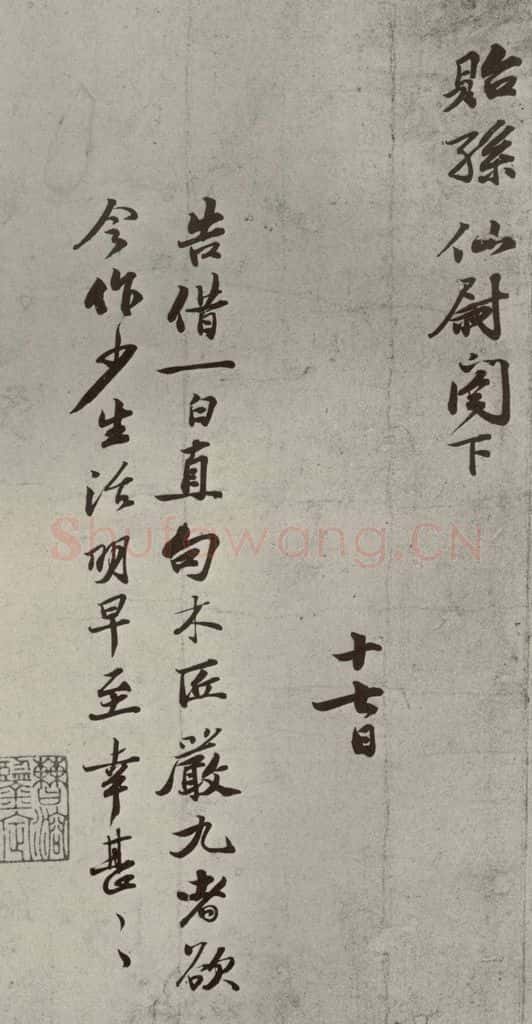 貽孫仙尉閤下
十七日
告借一白直勾木匠嚴九者欲
令作少生活明早至幸甚〻
Shufawang.CN